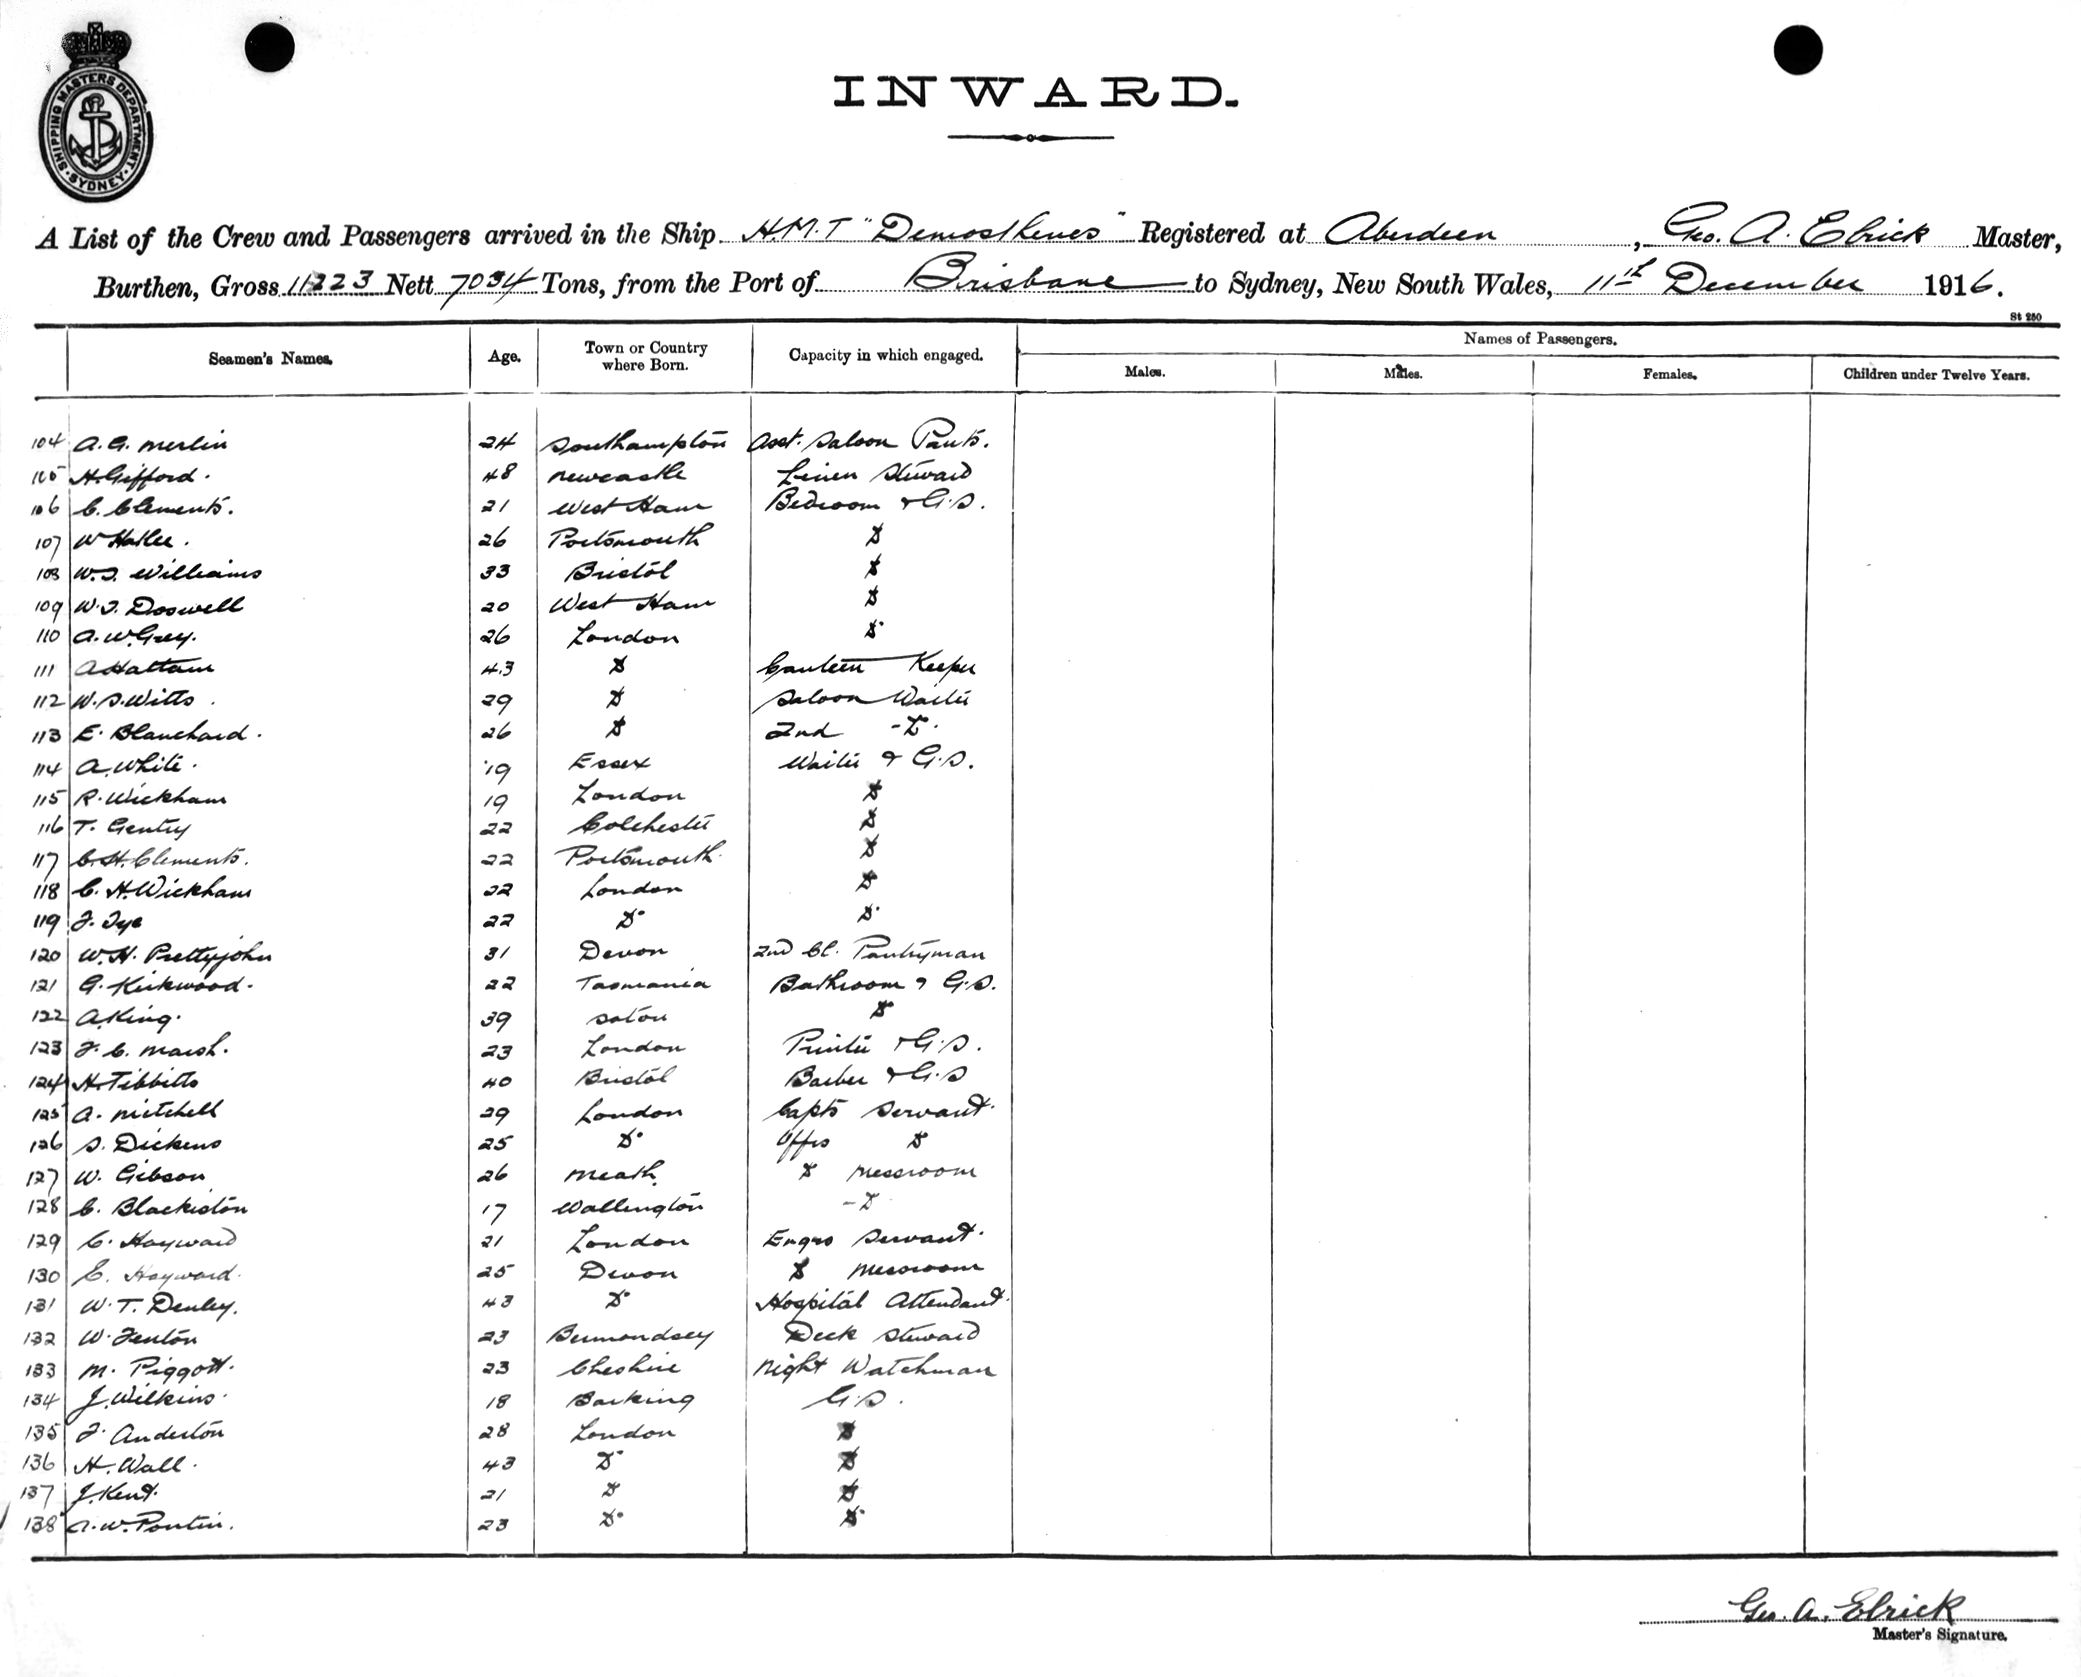 SHIPPING MASTERS DEPARTMENT. SYDNEY
INWARD.
A List of the Crew and Passengers arrived in the Ship H.M.T "Demosthenes" Registered at Aberdeen, Geo. A. Elrick Master,
Burthen, Gross 11223 Nett 7034 Tons, from the Port of Brisbane to Sydney, New South Wales, 11th December 1916.
St 250
Seamen's Names. Age. Town or Country where Born. Capacity in which engaged. Names of Passengers.
Males. Males. Females. Children under Twelve Years.
104 A. G. Merlin 24 Southampton Asst. Saloon Pants.
105 H. Gifford. 48 Newcastle Linen Steward
106 C. Clements. 21 West Ham Bedroom & G.S.
107 W 26 Portsmouth Do
108 W. J. Williams 33 Bristol Do
109 W. J. Doswell 20 West Ham Do
110 A. W. Grey. 26 London Do
111 A Hattam 43 Do Canteen Keeper
112 W. S. Witts 29 Do Saloon Waiter
113 E. Blanchard. 26 Do 2nd - Do.
114 A. White. 19 Essex Waiter & G.S.
115 R. Wickham 19 London Do
116 T. Gentry 22 Colchester Do
117 C. H. Clements. 22 Portsmouth. Do
118 C. H. Wickham 22 London Do
119 J. Tye 22 Do Do
120 W. H. Prettyjohn 31 Devon 2nd Cl. Pantryman
121 G. Kirkwood. 22 Tasmania Bathroom & G.S.
122 A. King. 39 Do
123 F. C. Marsh. 23 London Printer & G.S.
124 H. Tibbitts 40 Bristol Barber & G.S
125 A. Mitchell 29 London Capts Servant.
126 S. Dickens 25 Do Offrs Do
127 W. Gibson 26 Meath. Do Messroom
128 C. Blackiston 17 Wallington - Do
129 C. Hayward 21 London Engrs Servant.
130 E. Hayward. 25 Devon Do Messroom
131 W. T. Denley. 43 Do Hospital Attendant.
132 W. Fenton 23 Bermondsey Deck Steward
133 M. Piggott. 23 Cheshire Night Watchman
134 J. Wilkins. 18 Barking G.S.
135 F. Anderton 28 London Do
136 H. Wall. 43 Do Do
137 J. Kent. 21 Do Do
138 A. W. Pontin. 23 Do Do
Geo. A. Elrick
Master's Signature.